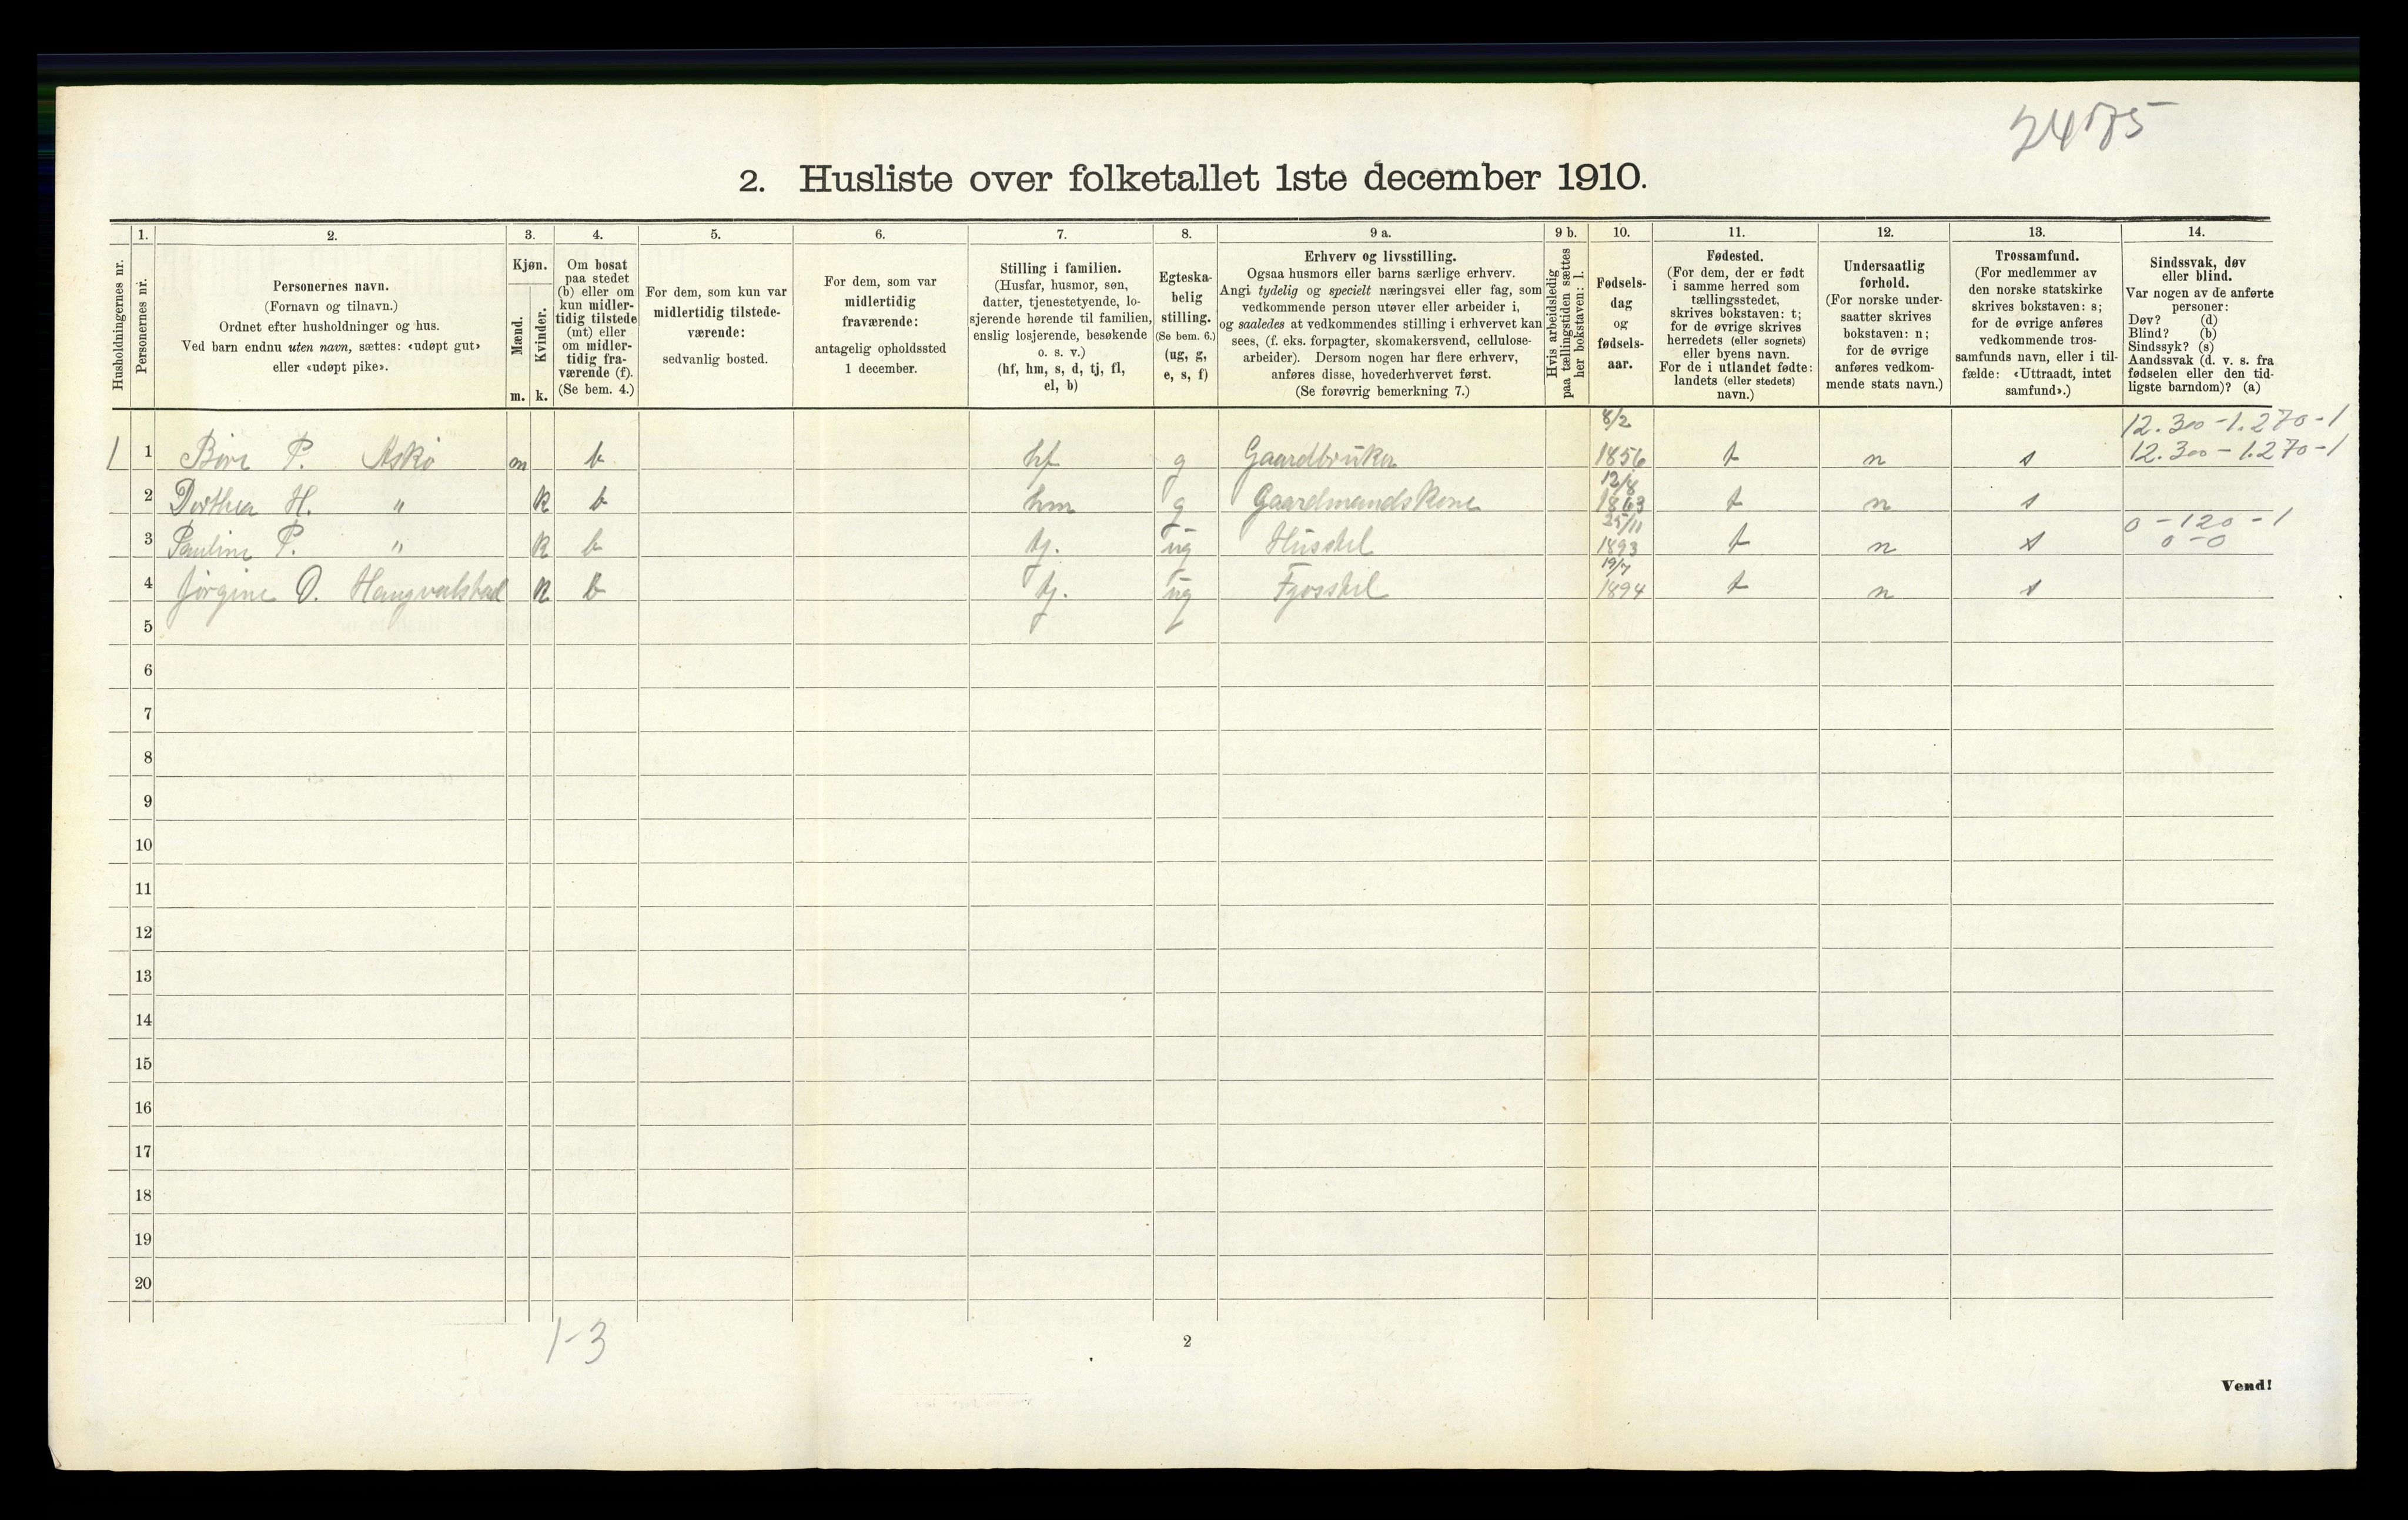 2. Husliste over folketallet 1ste december 1910.
1. 2. 3. 4. 5. 6. 7. 8. 9 a. 9 b. 10. 11. 12. 13. 14.
Husholdningernes nr.
Personernes nr.
Personernes navn.
(Fornavn og tilnavn.)
Ordnet efter husholdninger og hus.
Ved barn endnu uten navn, sættes: «udøpt gut»
eller «udøpt pike».
Kjøn.
Mænd.
Kvinder.
m. k.
Om bosat
paa stedet
(b) eller om
kun midler-
tidig tilstede
(mt) eller
om midler-
tidig fra-
værende (f).
(Se bem. 4.)
For dem, som kun var
midlertidig tilstede-
værende:
sedvanlig bosted.
For dem, som var
midlertidig
fraværende:
antagelig opholdssted
1 december.
Stilling i familien.
(Husfar, husmor, søn,
datter, tjenestetyende, lo-
sjerende hørende til familien,
enslig losjerende, besøkende
o. s. v.)
(hf, hm, s, d, tj, fl,
el, b)
Egteska-
belig
stilling.
(Se bem. 6.)
(ug, g,
e, s, f)
Erhverv og livsstilling.
Ogsaa husmors eller barns særlige erhverv.
Angi tydelig og specielt næringsvei eller fag, som
vedkommende person utøver eller arbeider i,
og saaledes at vedkommendes stilling i erhvervet kan
sees, (f. eks. forpagter, skomakersvend, cellulose-
arbeider). Dersom nogen har flere erhverv,
anføres disse, hovederhvervet først.
(Se forøvrig bemerkning 7.)
Hvis arbeidsledig
paa tællingstiden sættes
her bokstaven: l.
Fødsels-
dag
og
fødsels-
aar.
Fødested.
(For dem, der er født
i samme herred som
tællingsstedet,
skrives bokstaven: t;
for de øvrige skrives
herredets (eller sognets)
eller byens navn.
For de i utlandet fødte:
landets (eller stedets)
navn.)
Undersaatlig
forhold.
(For norske under-
saatter skrives
bokstaven: n;
for de øvrige
anføres vedkom-
mende stats navn.)
Trossamfund.
(For medlemmer av
den norske statskirke
skrives bokstaven: s;
for de øvrige anføres
vedkommende tros-
samfunds navn, eller i til-
fælde: «Uttraadt, intet
samfund».)
Sindssvak, døv
eller blind.
Var nogen av de anførte
personer:
Døv? (d)
Blind? (b)
Sindssyk? (s)
Aandssvak (d. v. s. fra
fødselen eller den tid-
ligste barndom)? (a)
8/2 12.300-1.270-1
1 1 Børe P. Askø m b hf g Gaardbruker 1856 t n s 12.300-1.270-1
12/8
2 Dorthea H. " k b hm g Gaardmandskone 1863 t n s
25/11 0-120-1
3 Pauline P. " k b tj. ug Husstel 1893 t n s 0-0
19/7
4 Jørgine O. Haugvalstad k b tj. ug Fjosstel 1894 t n s
5
6
7
8
9
10
11
12
13
14
15
16
17
18
19
20
1-3
2
Vend!